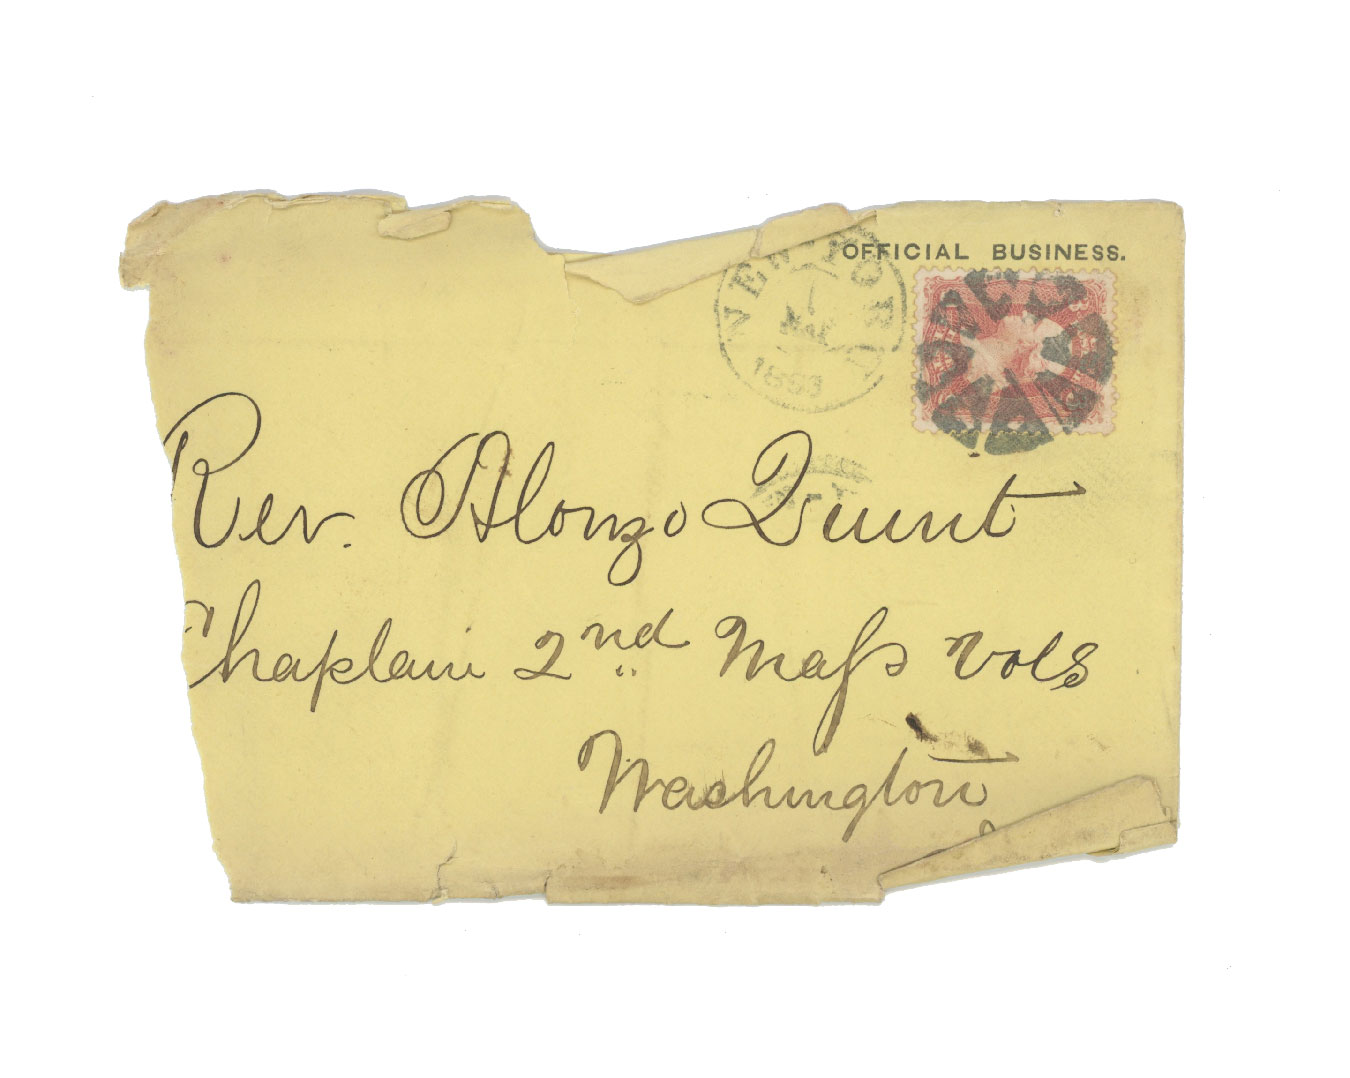 OFFICIAL BUSINESS.
NEW YORK
1863
Rev. Alonzo Quint
Chaplain 2nd Mass Vols
Washington